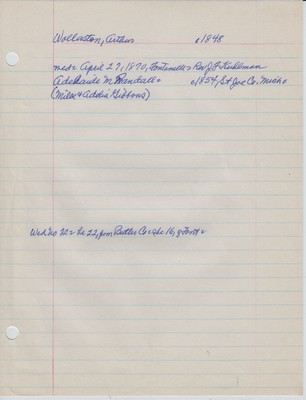 Wollaston, Arthur c1848
med= April 27, 1870, Fontanelle= Rev J. F. Kuhlman
Adelaide M. Randall= c1854, St Joe Co. Mich=
(Miles & Addia Gibbons)
Wed. no 22= he 22, from Butler Co= she 16,